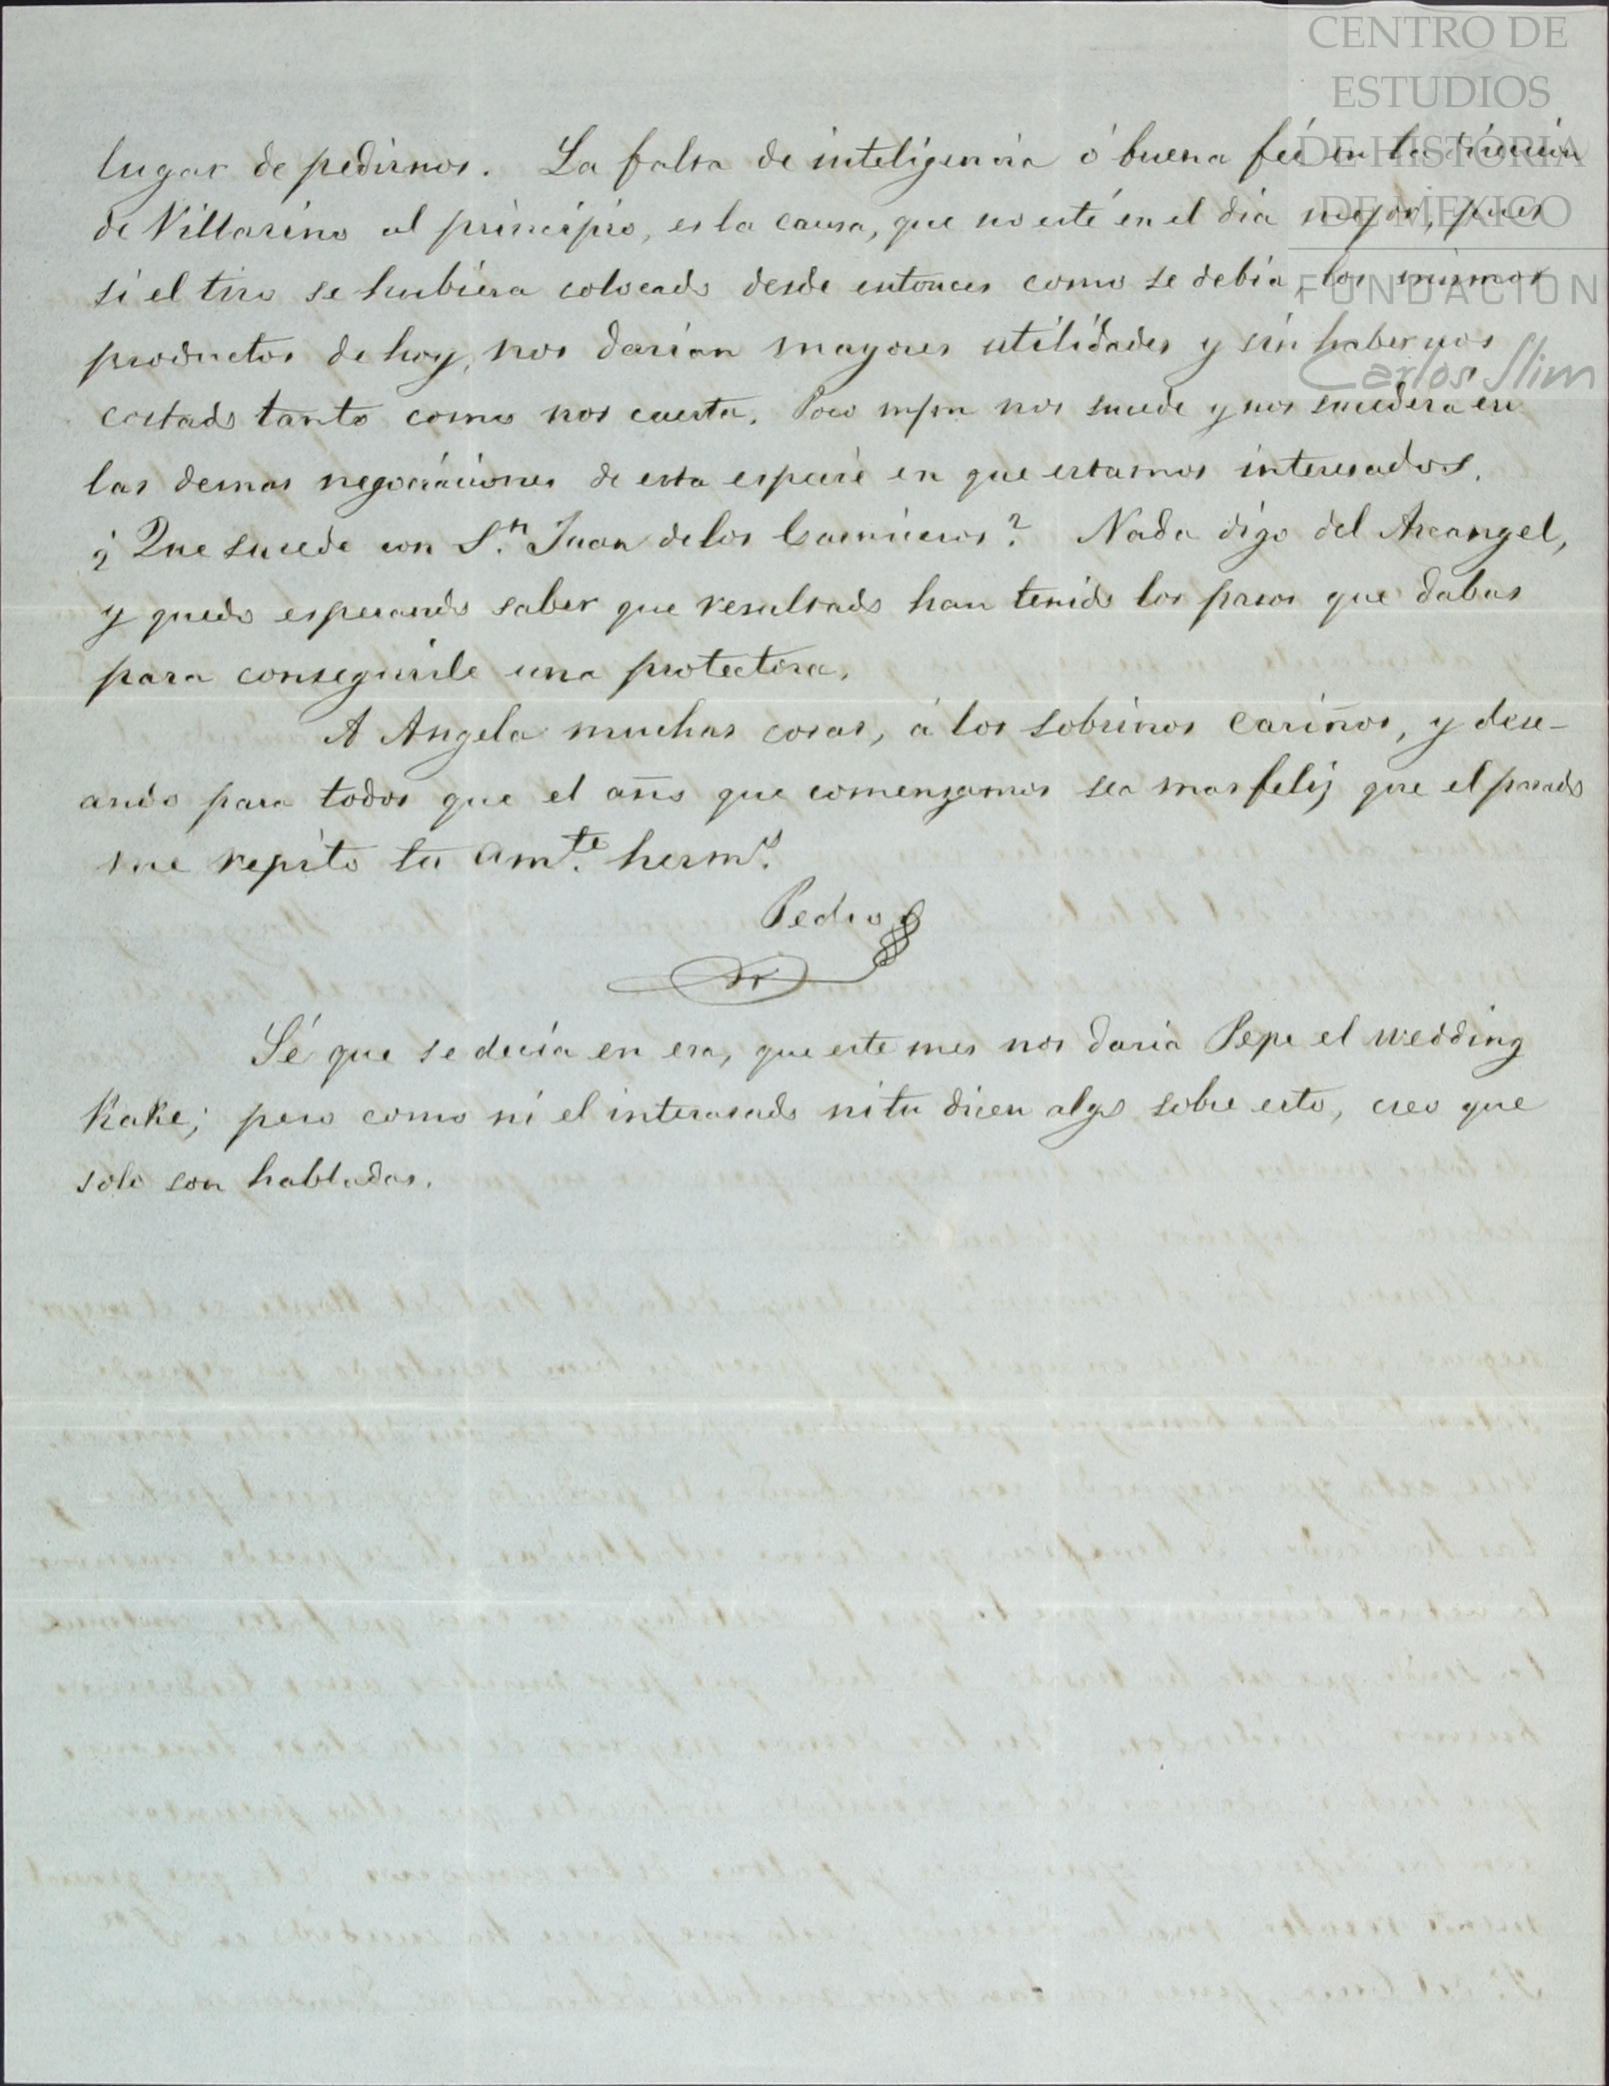 CENTRO DE
ESTUDIOS
DE HISTORIA
DE MÉXICO
FUNDACIÓN
Carlos Slim
lugar de pedirnos. La falta de inteligencia ó buena feé en la direccion
de Villarino al principio, es la causa, que no esté en el dia mejor, pues
si el tiro se hubiera colocado desde entonces como se debia, los mismos
productos de hoy, nos darian mayores utilidades y sin habernos
costado tanto como nos cuesta. Poco m/m nos sucede y nos sucedera en
las demas negociaciones de esta especie en que estamos interesados.
¿Que sucede con S.n Juan de los Carniceros? Nada digo del Arcangel,
y quedo esperando saber que resultado han tenido los pasos que dabas
para conseguirle una protectora.
A Angela muchas cosas, á los sobrinos cariños, y dese-
ando para todos que el año que comenzamos sea mas feliz que el pasado
me repito tu am.te herm.o
Pedro
Sé que se decia en esa, que este mes nos daria Pepe el wedding
Kake; pero como ni el interasado ni tu dicen algo sobre esto, creo que
solo son habladas.